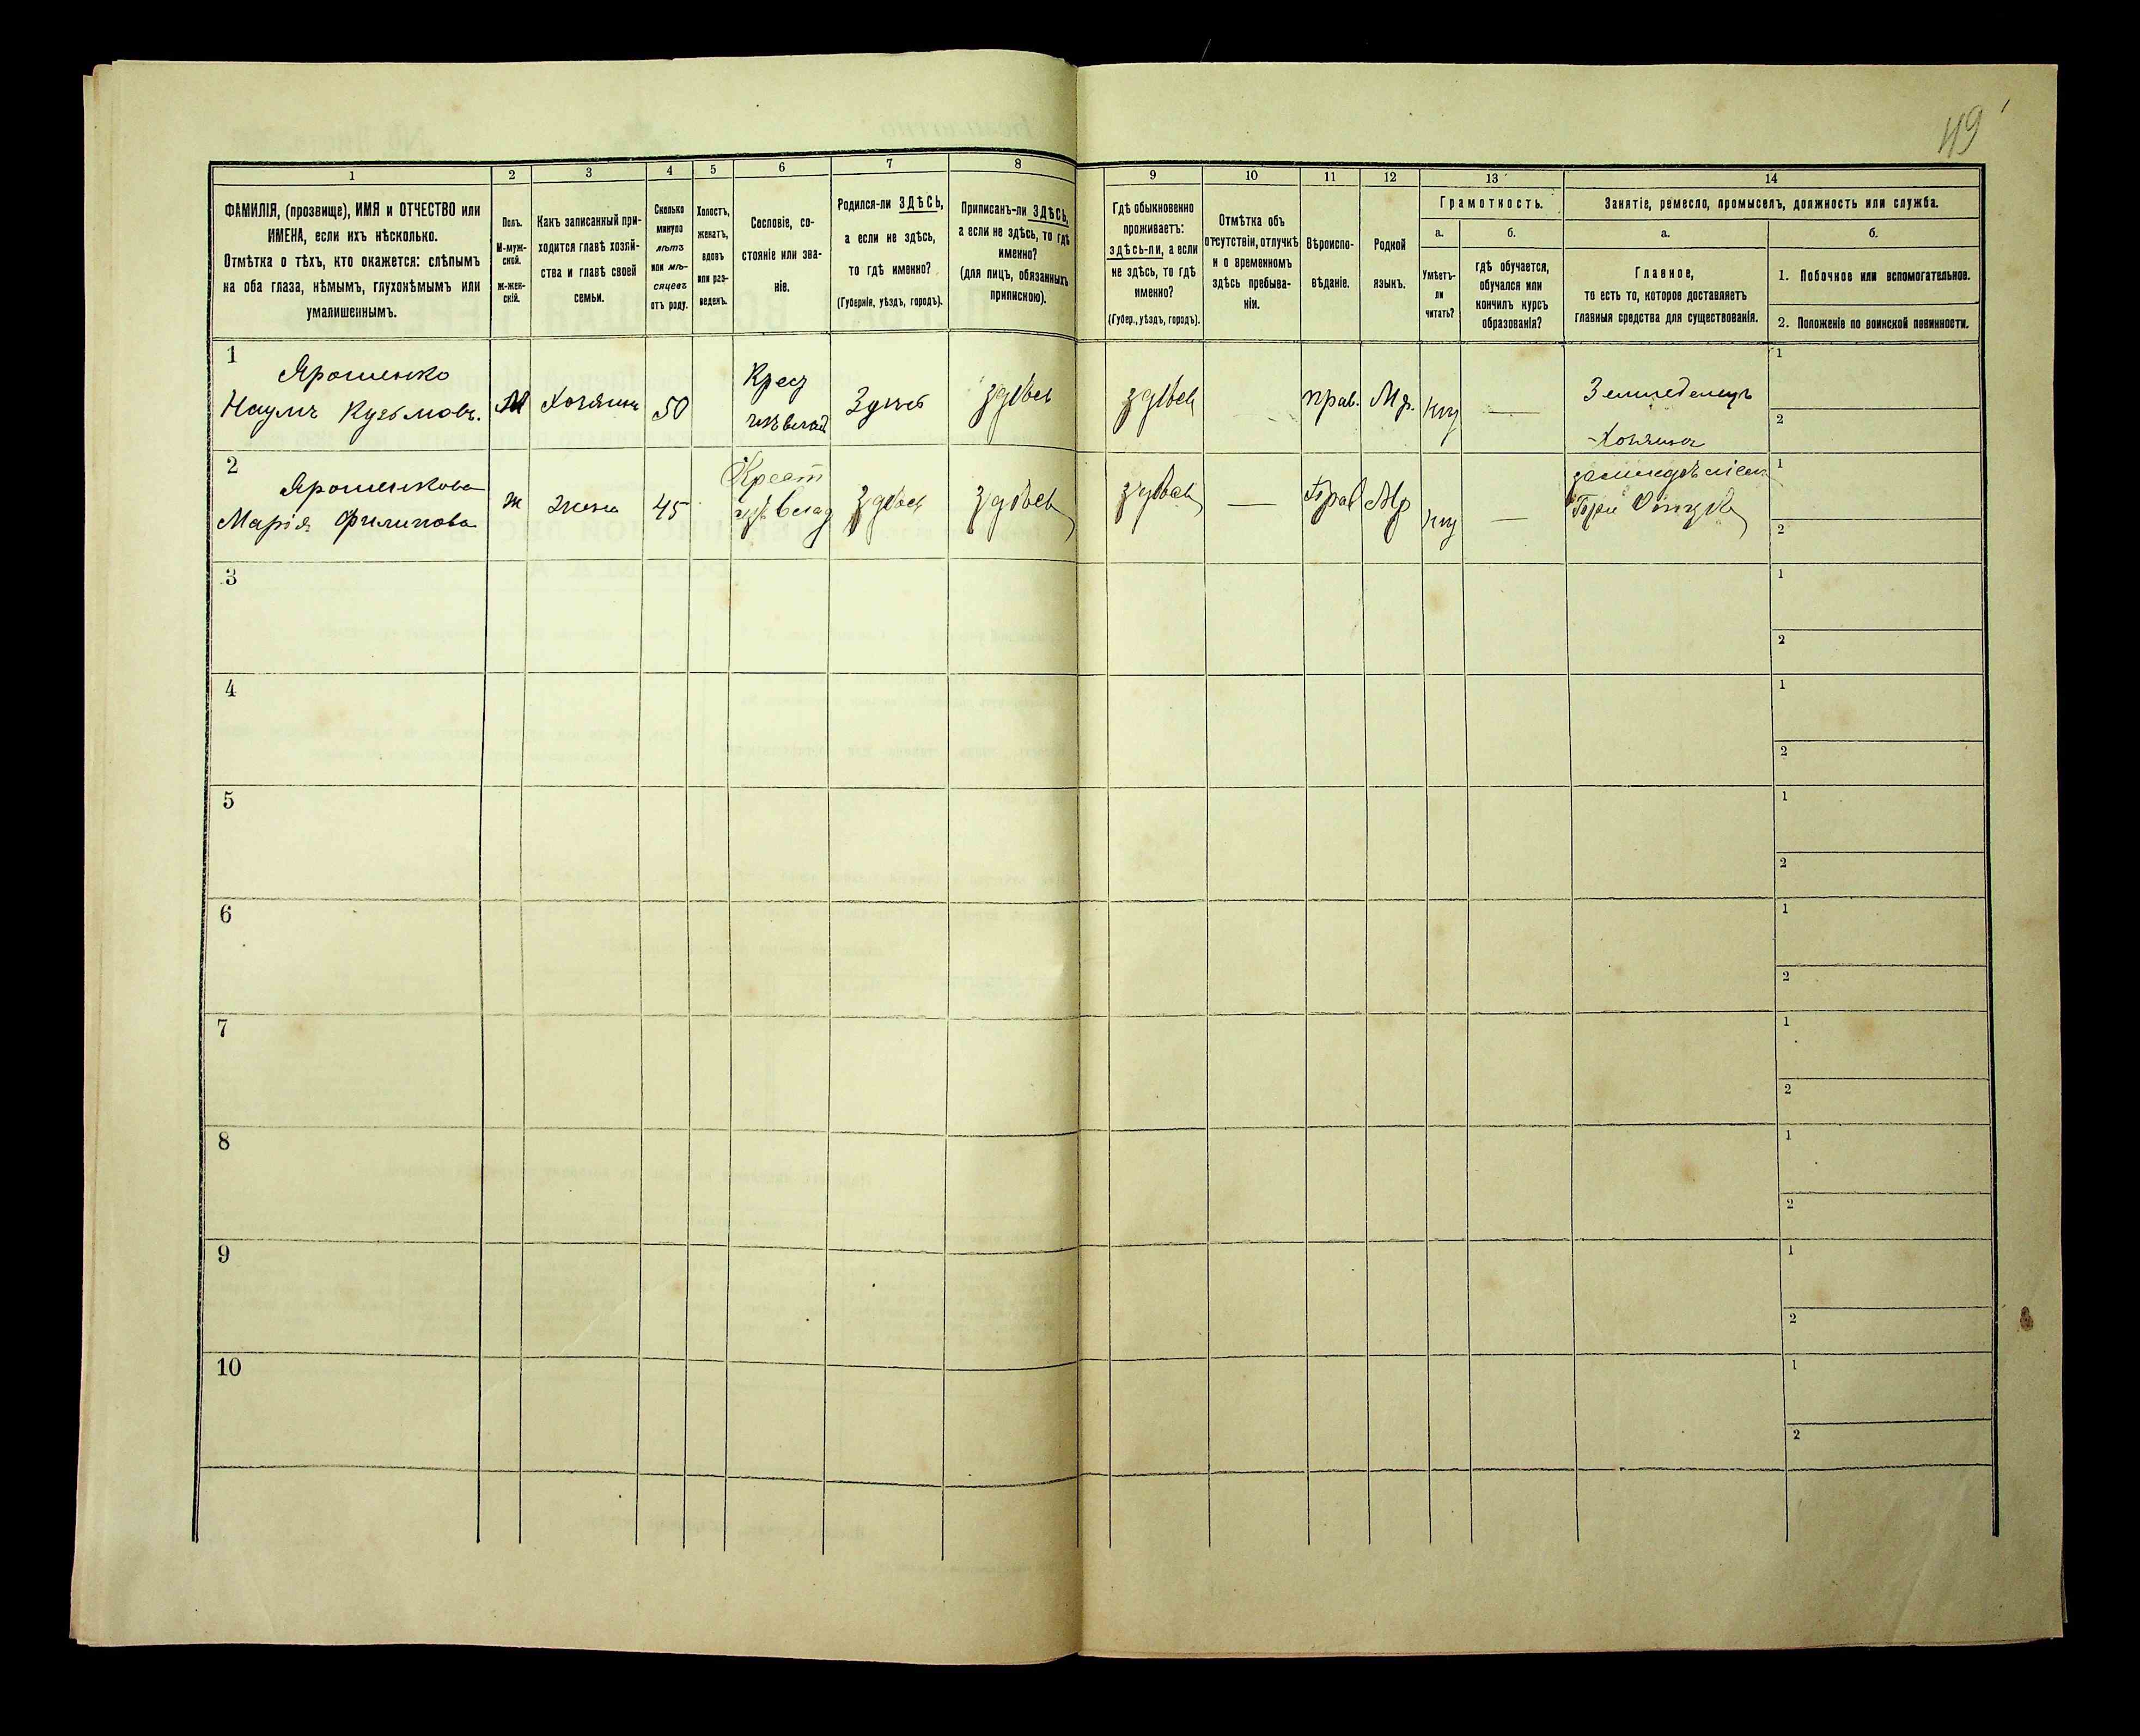 49
1
2
3
4
5
6
7
8
9
10
11
12
13
14
ФАМИЛІЯ, (прозвище), ИМЯ и ОТЧЕСТВО или
ИМЕНА, если ихъ нѣсколько.
Отмѣтка о тѣхъ, кто окажется: слѣпымъ
на оба глаза, нѣмымъ, глухонѣмымъ или
умалишеннымъ.
Полъ.
М-муж-
ской.
ж-жен-
скій.
Какъ записанный при-
ходится главѣ хозяй-
ства и главѣ своей
семьи.
Сколько
минуло
лѣтъ
или мѣ-
сяцевъ
отъ роду.
Холостъ,
женатъ,
вдовъ
или раз-
веденъ.
Сословіе, со-
стояніе или зва-
ніе.
Родился-ли ЗДѢСЬ,
а если не здѣсь,
то гдѣ именно?
(Губернія, уѣздъ, городъ).
Приписанъ-ли ЗДѢСЬ,
а если не здѣсь, то гдѣ
именно?
(для лицъ, обязанныхъ
припискою).
Гдѣ обыкновенно
проживаетъ:
здѣсь-ли, а если
не здѣсь, то гдѣ
именно?
(Губер., уѣздъ, городъ).
Отмѣтка объ
отсутствіи, отлучкѣ
и о временномъ
здѣсь пребыва-
ніи.
Вѣроиспо-
вѣданіе.
Родной
языкъ.
Грамотность.
а.
Умѣетъ-
ли
читать?
б.
гдѣ обучается,
обучался или
кончилъ курсъ
образованія?
Занятіе, ремесло, промыселъ, должность или служба.
а.
Главное,
то есть то, которое доставляетъ
главныя средства для существованія.
б.
1. Побочное или вспомогательное.
2. Положеніе по воинской повинности.
1
Ярошенко
Наумъ Кузьмовъ.
М
Хозяинъ
50
Крес
Здѣсь
здѣсь
здѣсь
прав.
Мр.
Земледелецъ
Хозяинъ
1
2
2
Ярошенкова
Марія Филипова
ж
жена
45
Крест
здѣсь
здѣсь
здѣсь
—
Прав
Мр
—
При
1
2
3
1
2
4
1
2
5
1
2
6
1
2
7
1
2
8
1
2
9
1
2
10
1
2